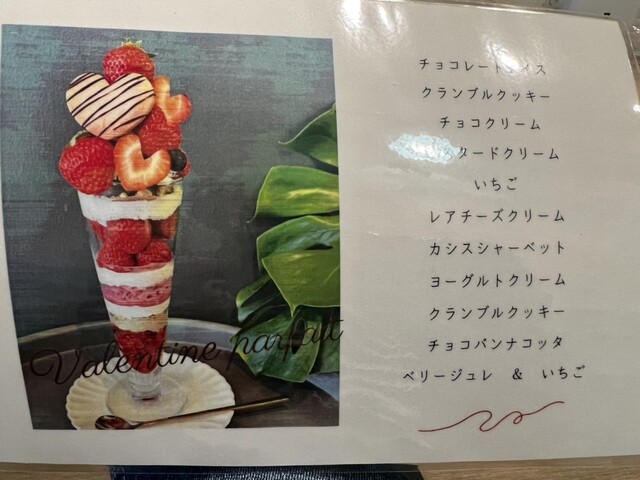 Valentine parfait
チョコレートアイス
クランブルクッキー
チョコクリーム
タードクリーム
いちご
レアチーズクリーム
カシスシャーベット
ヨーグルトクリーム
クランブルクッキー
チョコパンナコッタ
ベリージュレ & いちご